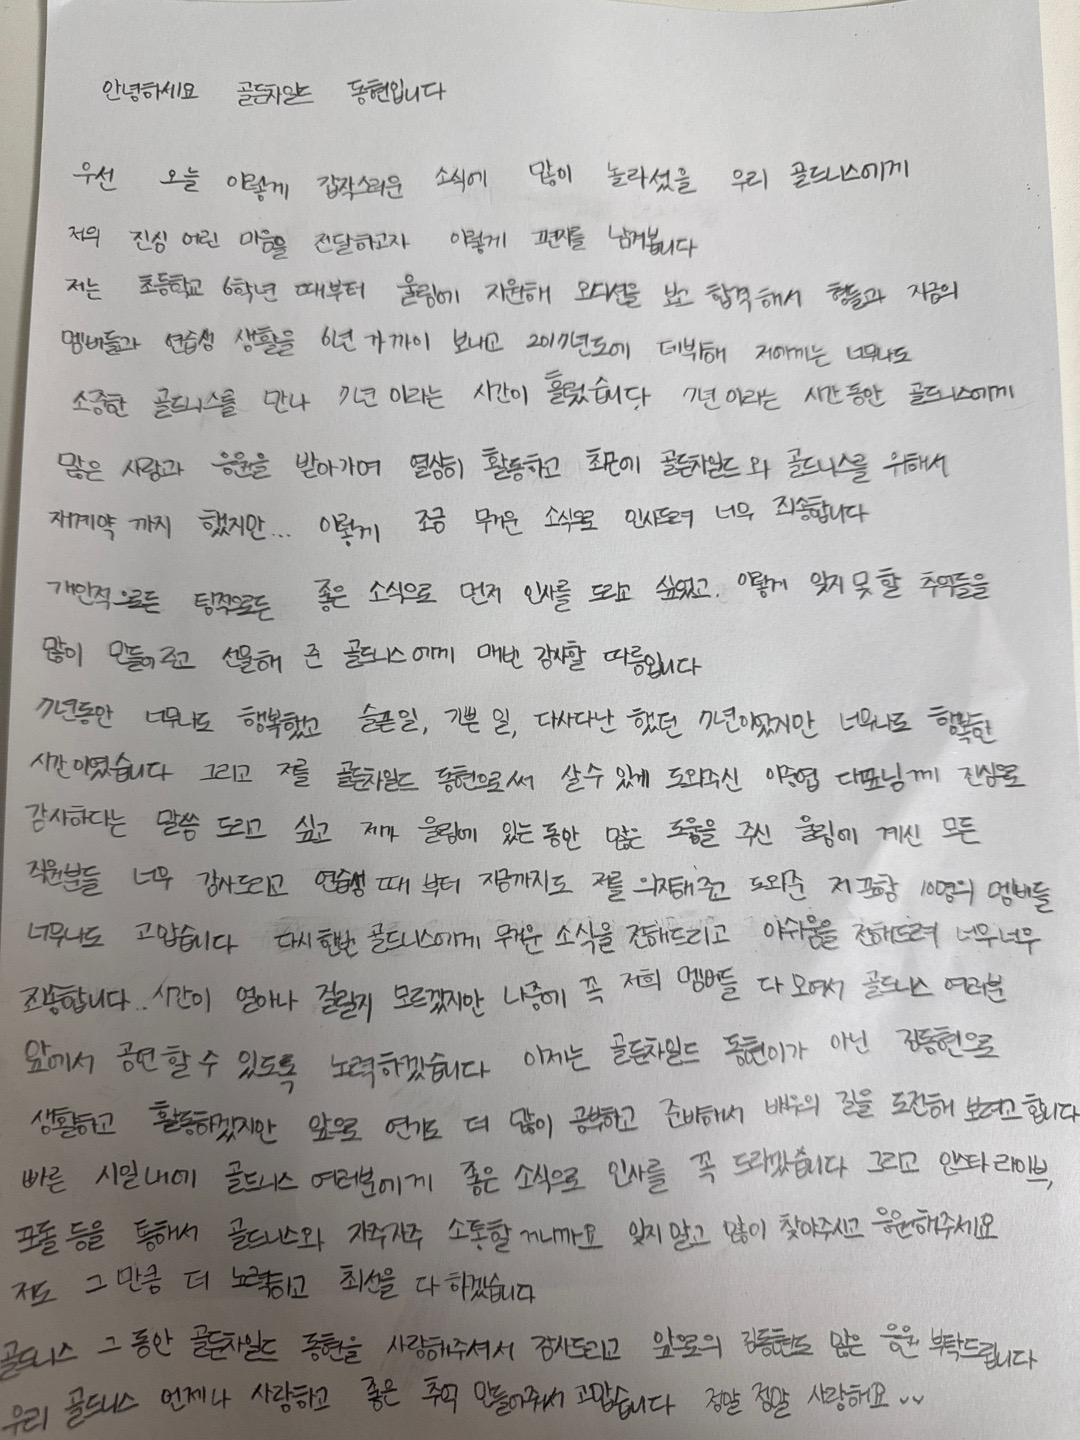 안녕하세요 골든차일드 동현입니다
우선 오늘 이렇게 갑작스러운 소식에 많이 놀라셨을 우리 골드니스에게
저의 진심 어린 마음을 전달하고자 이렇게 편지를 남겨봅니다
저는 초등학교 6학년 때부터 울림에 지원해 오디션을 보고 합격해서 형들과 지금의
멤버들과 연습생 생활을 6년 가까이 보내고 2017년도에 데뷔해 저에게는 너무나도
소중한 골드니스를 만나 7년 이라는 시간이 흘렀습니다. 7년 이라는 시간동안 골드니스에게
많은 사랑과 응원을 받아가며 열심히 활동하고 최근에 골든차일드와 골드니스를 위해서
재계약 까지 했지만... 이렇게 조금 무거운 소식으로 인사드려 너무 죄송합니다
개인적으로든 팀적으로든 좋은 소식으로 먼저 인사를 드리고 싶었고. 이렇게 잊지 못 할 추억들을
많이 만들어 주고 선물해 준 골드니스에게 매번 감사할 따름입니다
7년동안 너무나도 행복했고 슬픈일, 기쁜 일, 다사다난 했던 7년이었지만 너무나도 행복한
시간이였습니다 그리고 저를 골든차일드 동현으로써 살 수 있게 도와주신 이중엽 대표님께 진심으로
감사하다는 말씀 드리고 싶고 제가 울림에 있는 동안 많은 도움을 주신 울림에 계신 모든
직원분들 너무 감사드리고 연습생 때 부터 지금까지도 저를 의지해주고 도와준 저 포함 10명의 멤버들
너무나도 고맙습니다 다시한번 골드니스에게 무거운 소식을 전해드리고 아쉬움을 전해드려 너무너무
죄송합니다.. 시간이 얼마나 걸릴지 모르겠지만 나중에 꼭 저희 멤버들 다 모여서 골드니스 여러분
앞에서 공연 할 수 있도록 노력하겠습니다 이제는 골든차일드 동현이가 아닌 김동현으로
생활하고 활동하겠지만 앞으로 연기도 더 많이 공부하고 준비해서 배우의 길을 도전해 보려고 합니다
빠른 시일 내에 골드니스 여러분에게 좋은 소식으로 인사를 꼭 드리겠습니다 그리고 인스타 라이브,
포돌 등을 통해서 골드니스와 자주자주 소통할 거니까요 잊지 말고 많이 찾아주시고 응원해주세요
저도 그 만큼 더 노력하고 최선을 다 하겠습니다
골드니스 그 동안 골든차일드 동현을 사랑해주셔서 감사드리고 앞으로의 김동현도 많은 응원 부탁드립니다
우리 골드니스 언제나 사랑하고 좋은 추억 만들어줘서 고맙습니다 정말 정말 사랑해요